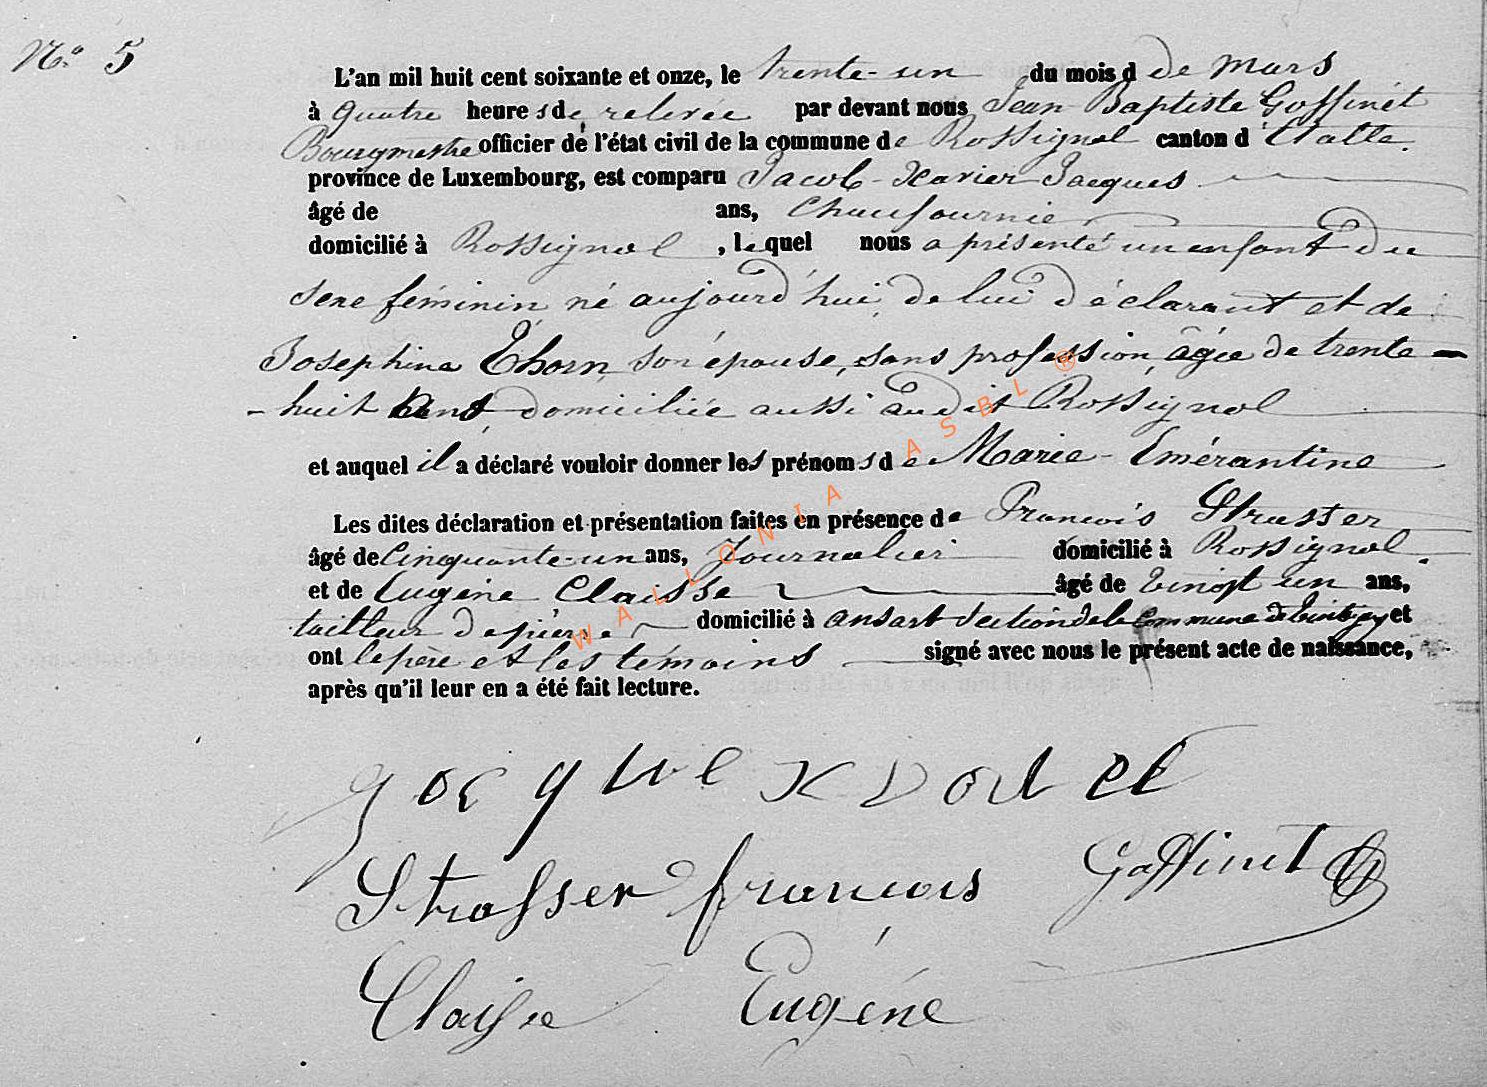 N.º 5
L'an mil huit cent soixante et onze, le trente-un du mois d de mars
à quatre heures de relevée par devant nous Jean Baptiste Goffinet
Bourgmestre officier de l'état civil de la commune de Rossignol canton d'Etalle.
province de Luxembourg, est comparu Jacob-Xavier Jacques
âgé de ans, Chaufournie
domicilié à Rossignol, lequel nous a présenté un enfant du
sexe féminin né aujourd'hui, de lui déclarant et de
Josephine Thorn, son épouse, sans profession, âgée de trente-
-huit ans, domiciliée aussi au dit Rossignol
et auquel il a déclaré vouloir donner les prénoms de Marie-Emérantine
Les dites déclaration et présentation faites en présence de François Strasser
âgé de Cinquante-un ans, Journalier domicilié à Rossignol.
et de Eugène Claisse âgé de vingt un ans,
tailleur de pierre domicilié à ansart section de la Commune de Tintigny et
ont le père et les témoins signé avec nous le présent acte de naissance,
après qu'il leur en a été fait lecture.
Strasser françois Goffinet
Claisse Eugéne
WALLONIA ASBL ®